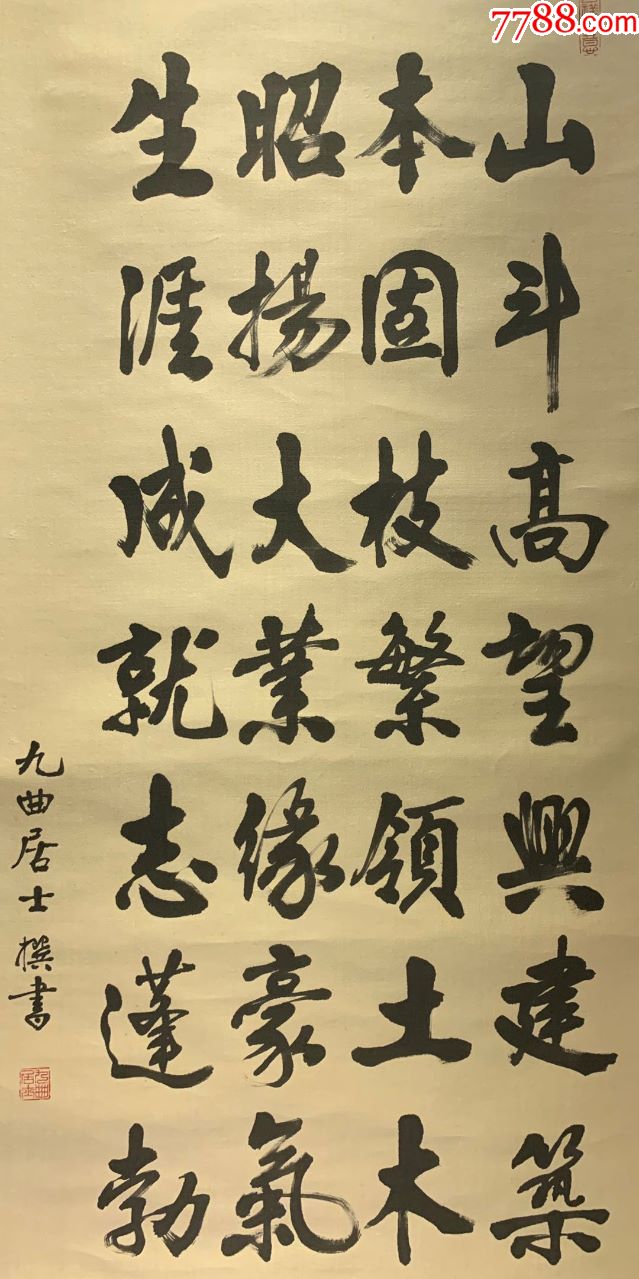 7788.com
山斗高望興建築
本固枝繁領土木
昭揚大業緣豪氣
生涯成就志蓬勃
九曲居士撰書
九曲居士